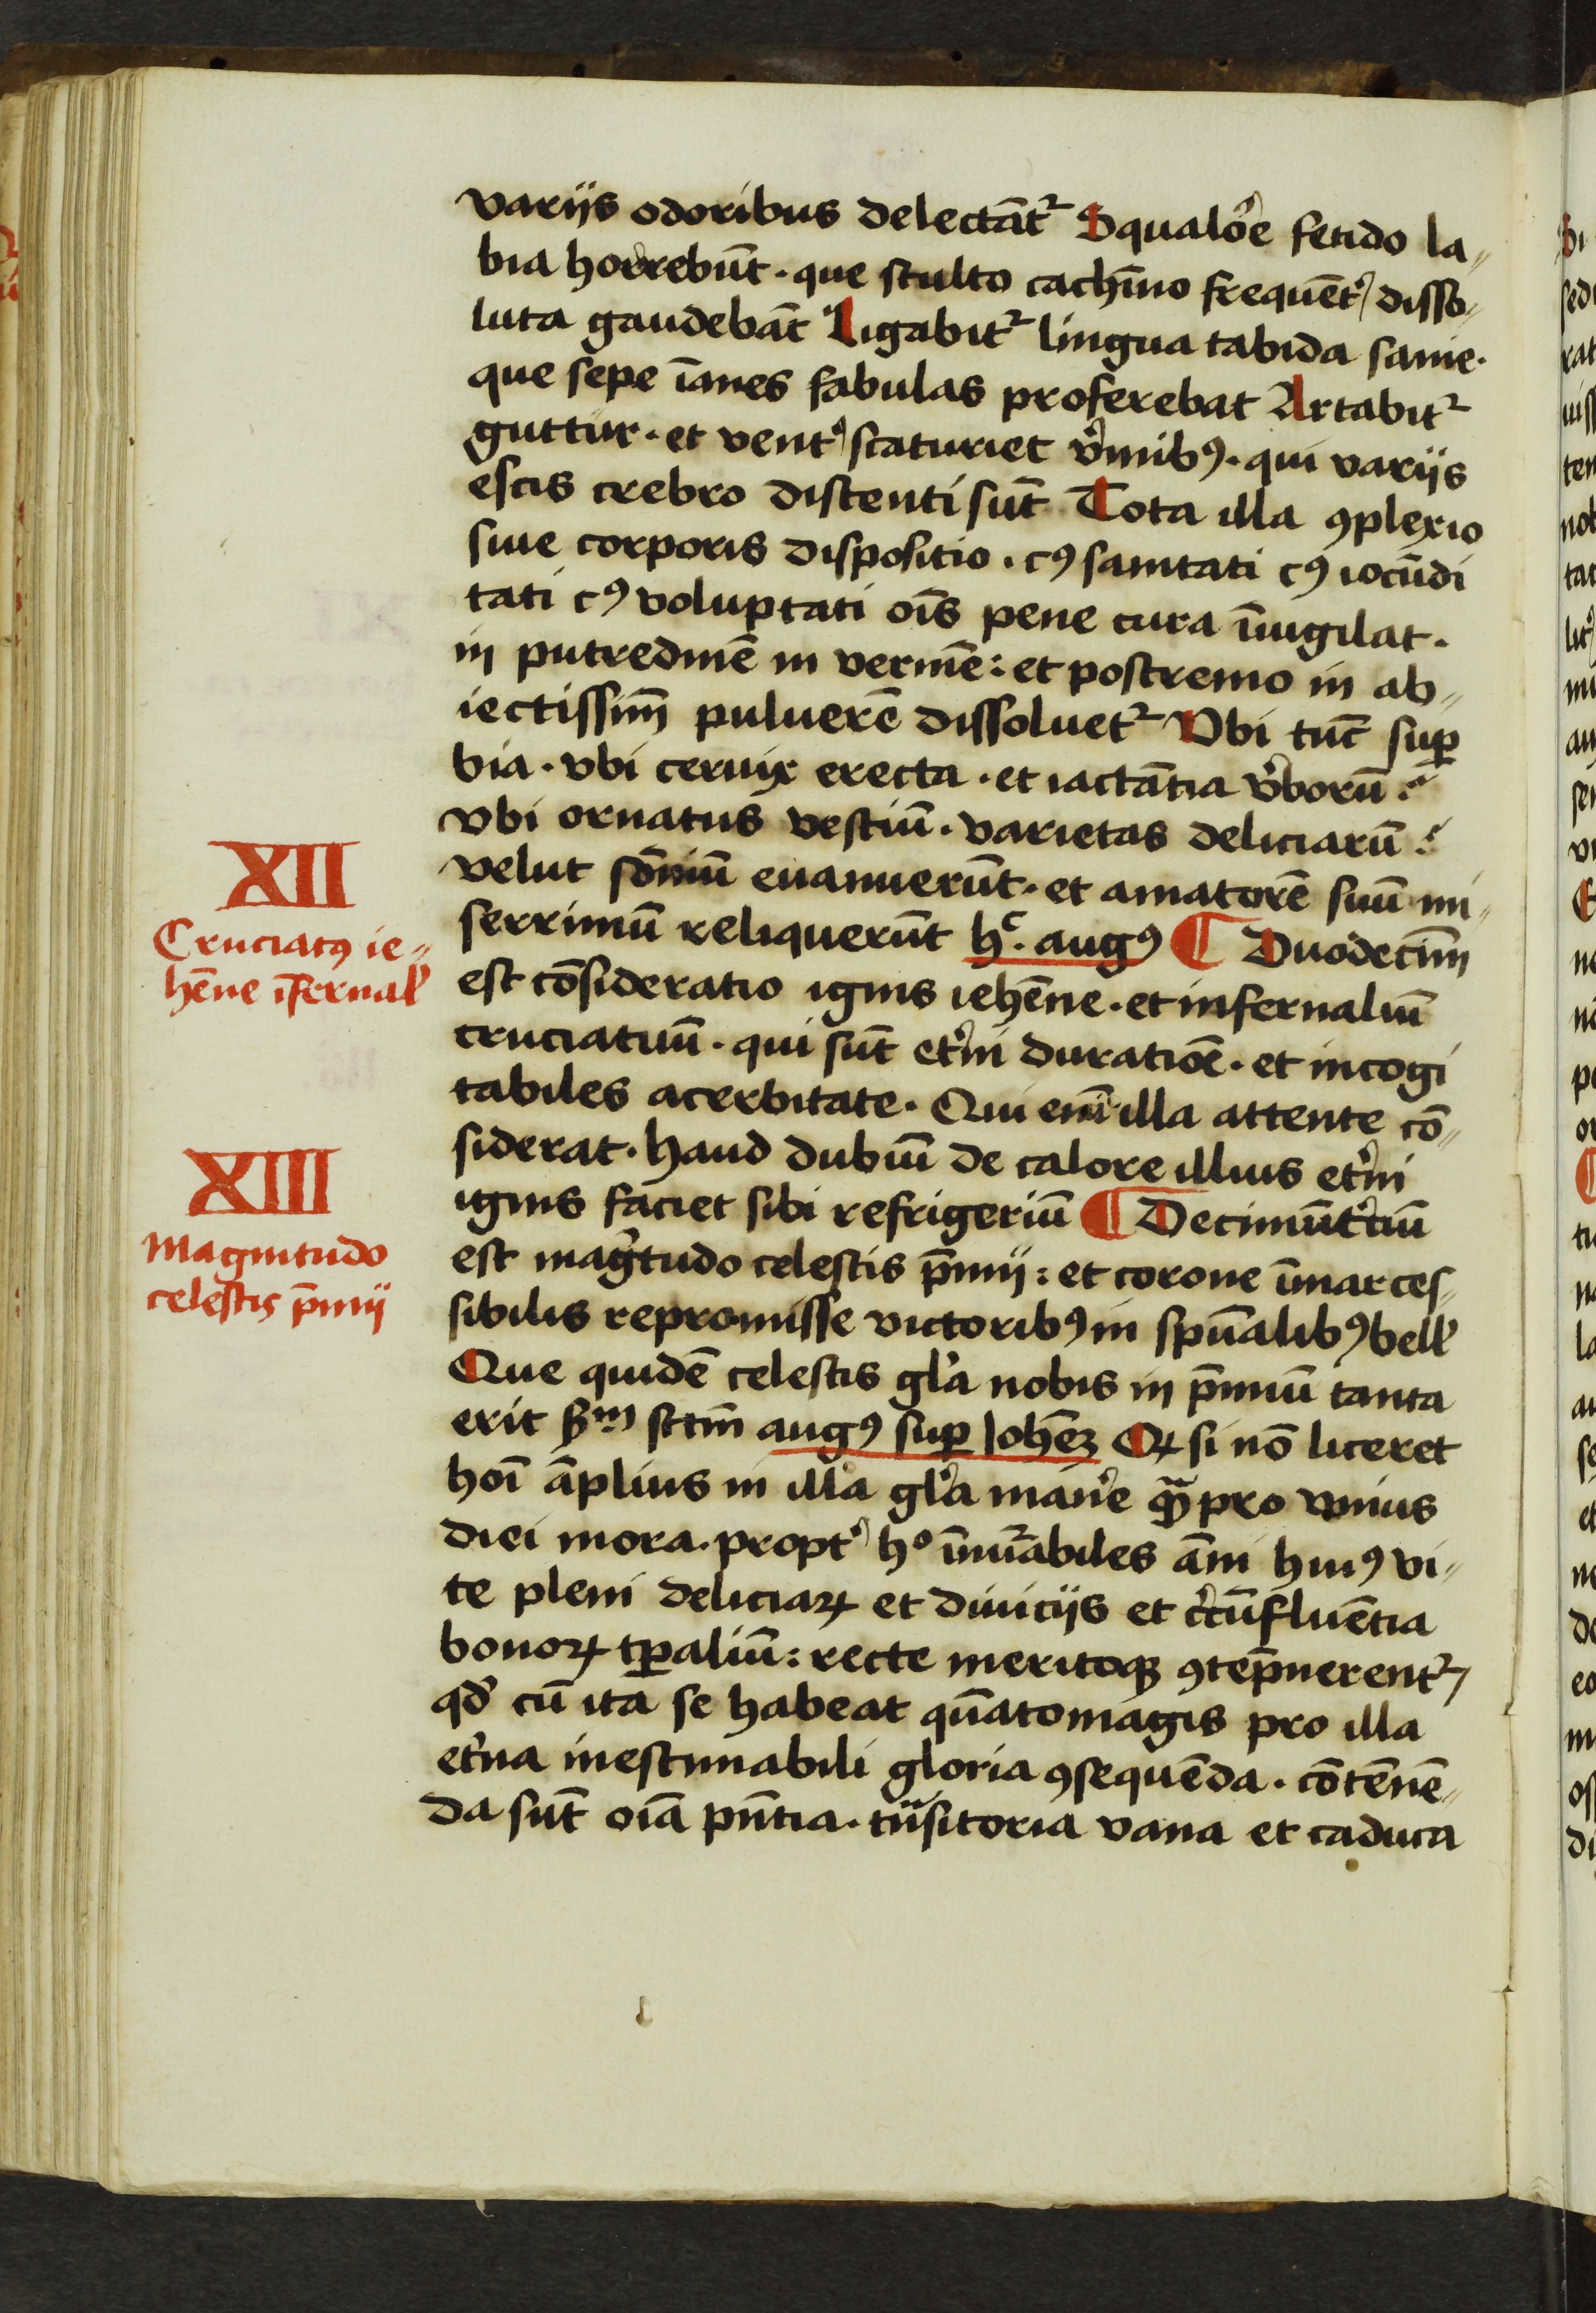 variis odoribus delectāt᷑ Squalo᷑e fetido la„
bia horrebūt · que stulto cachīno frequēt᷑ disso„
luta gaudebāt Ligabit᷑ lingua tabida sanie ·
que sepe īanes fabulas proferebat Artabit᷑
guttur · et vent᷑ scaturiet v᷑mibꝯ · qui variis
escis crebro distenti sūt Tota illa ꝯplexio
siue corporis dispositio · cꝯ sanitati cꝯ iocūdi
tati cꝯ voluptati oīs pene cura īuigilat ·
in putredinē in vermē : et postremo in ab„
iectissimū puluerē dissoluet᷑ Vbi tūc suꝑ
bia · vbi ceruix erecta · et iactātia v᷑borū ?
vbi ornatus vestiū · varietas deliciarū ?
velut sōniū euanuerūt · et amatorē suū mi„
serrimū reliquerūt hᶜ · augꝯ ¶ Duodecimū
est cōsideratio ignis iehēne · et infernaliū
cruciatuū · qui sūt et᷑ni duratiōe · et incogi
tabiles acerbitate · Qui enī illa attente cō„
siderat · haud dubiū de calore illius et᷑ni
ignis faciet sibi refrigeriū ¶ Decimūt᷑ciū
est magͥtudo celestis p̄mij : et corone īmarces„
sibilis repromisse victoribꝯ in spūalibꝯ bell᷑
Que quidē celestis gl᷑a nobis in p̄miū tanta
erit Sᵐ sctm̄ augꝯ suꝑ Iohēꝫ Qꝝ si nō liceret
hoī āplius in illa gl᷑a man᷑e q̄ꝫ pro vnius
diei mora · propt᷑ hº īnūabiles āni huiꝯ vi„
te pleni deliciaꝝ et diuiciis et c᷑cūfluētia
bonoꝝ tꝑaliū : recte meritoqꝫ ꝯtēpnerent᷑
qđ cū ita se habeat quātomagis pro illa
et᷑na inestimabili gloria ꝯsequēda · cōtēnē„
da sūt oīa pn̄tia · tᷓnsitoria vana et caduca
XII
Cruciatꝯ ie„
hēne īfernal᷑
XIII
Magnitudo
celestis p̄mij